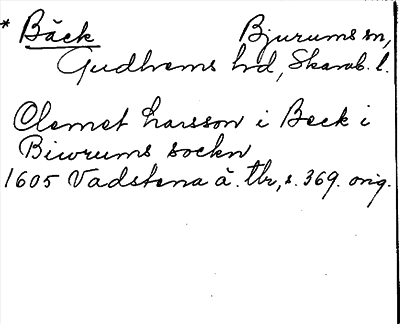 * Bäck Bjurums sn,
Gudhems hd, Skarab. l.
Clemet Larsson i Beck i
Biwrums sockn
1605 Vadstena ä. tbr, s. 369. orig.